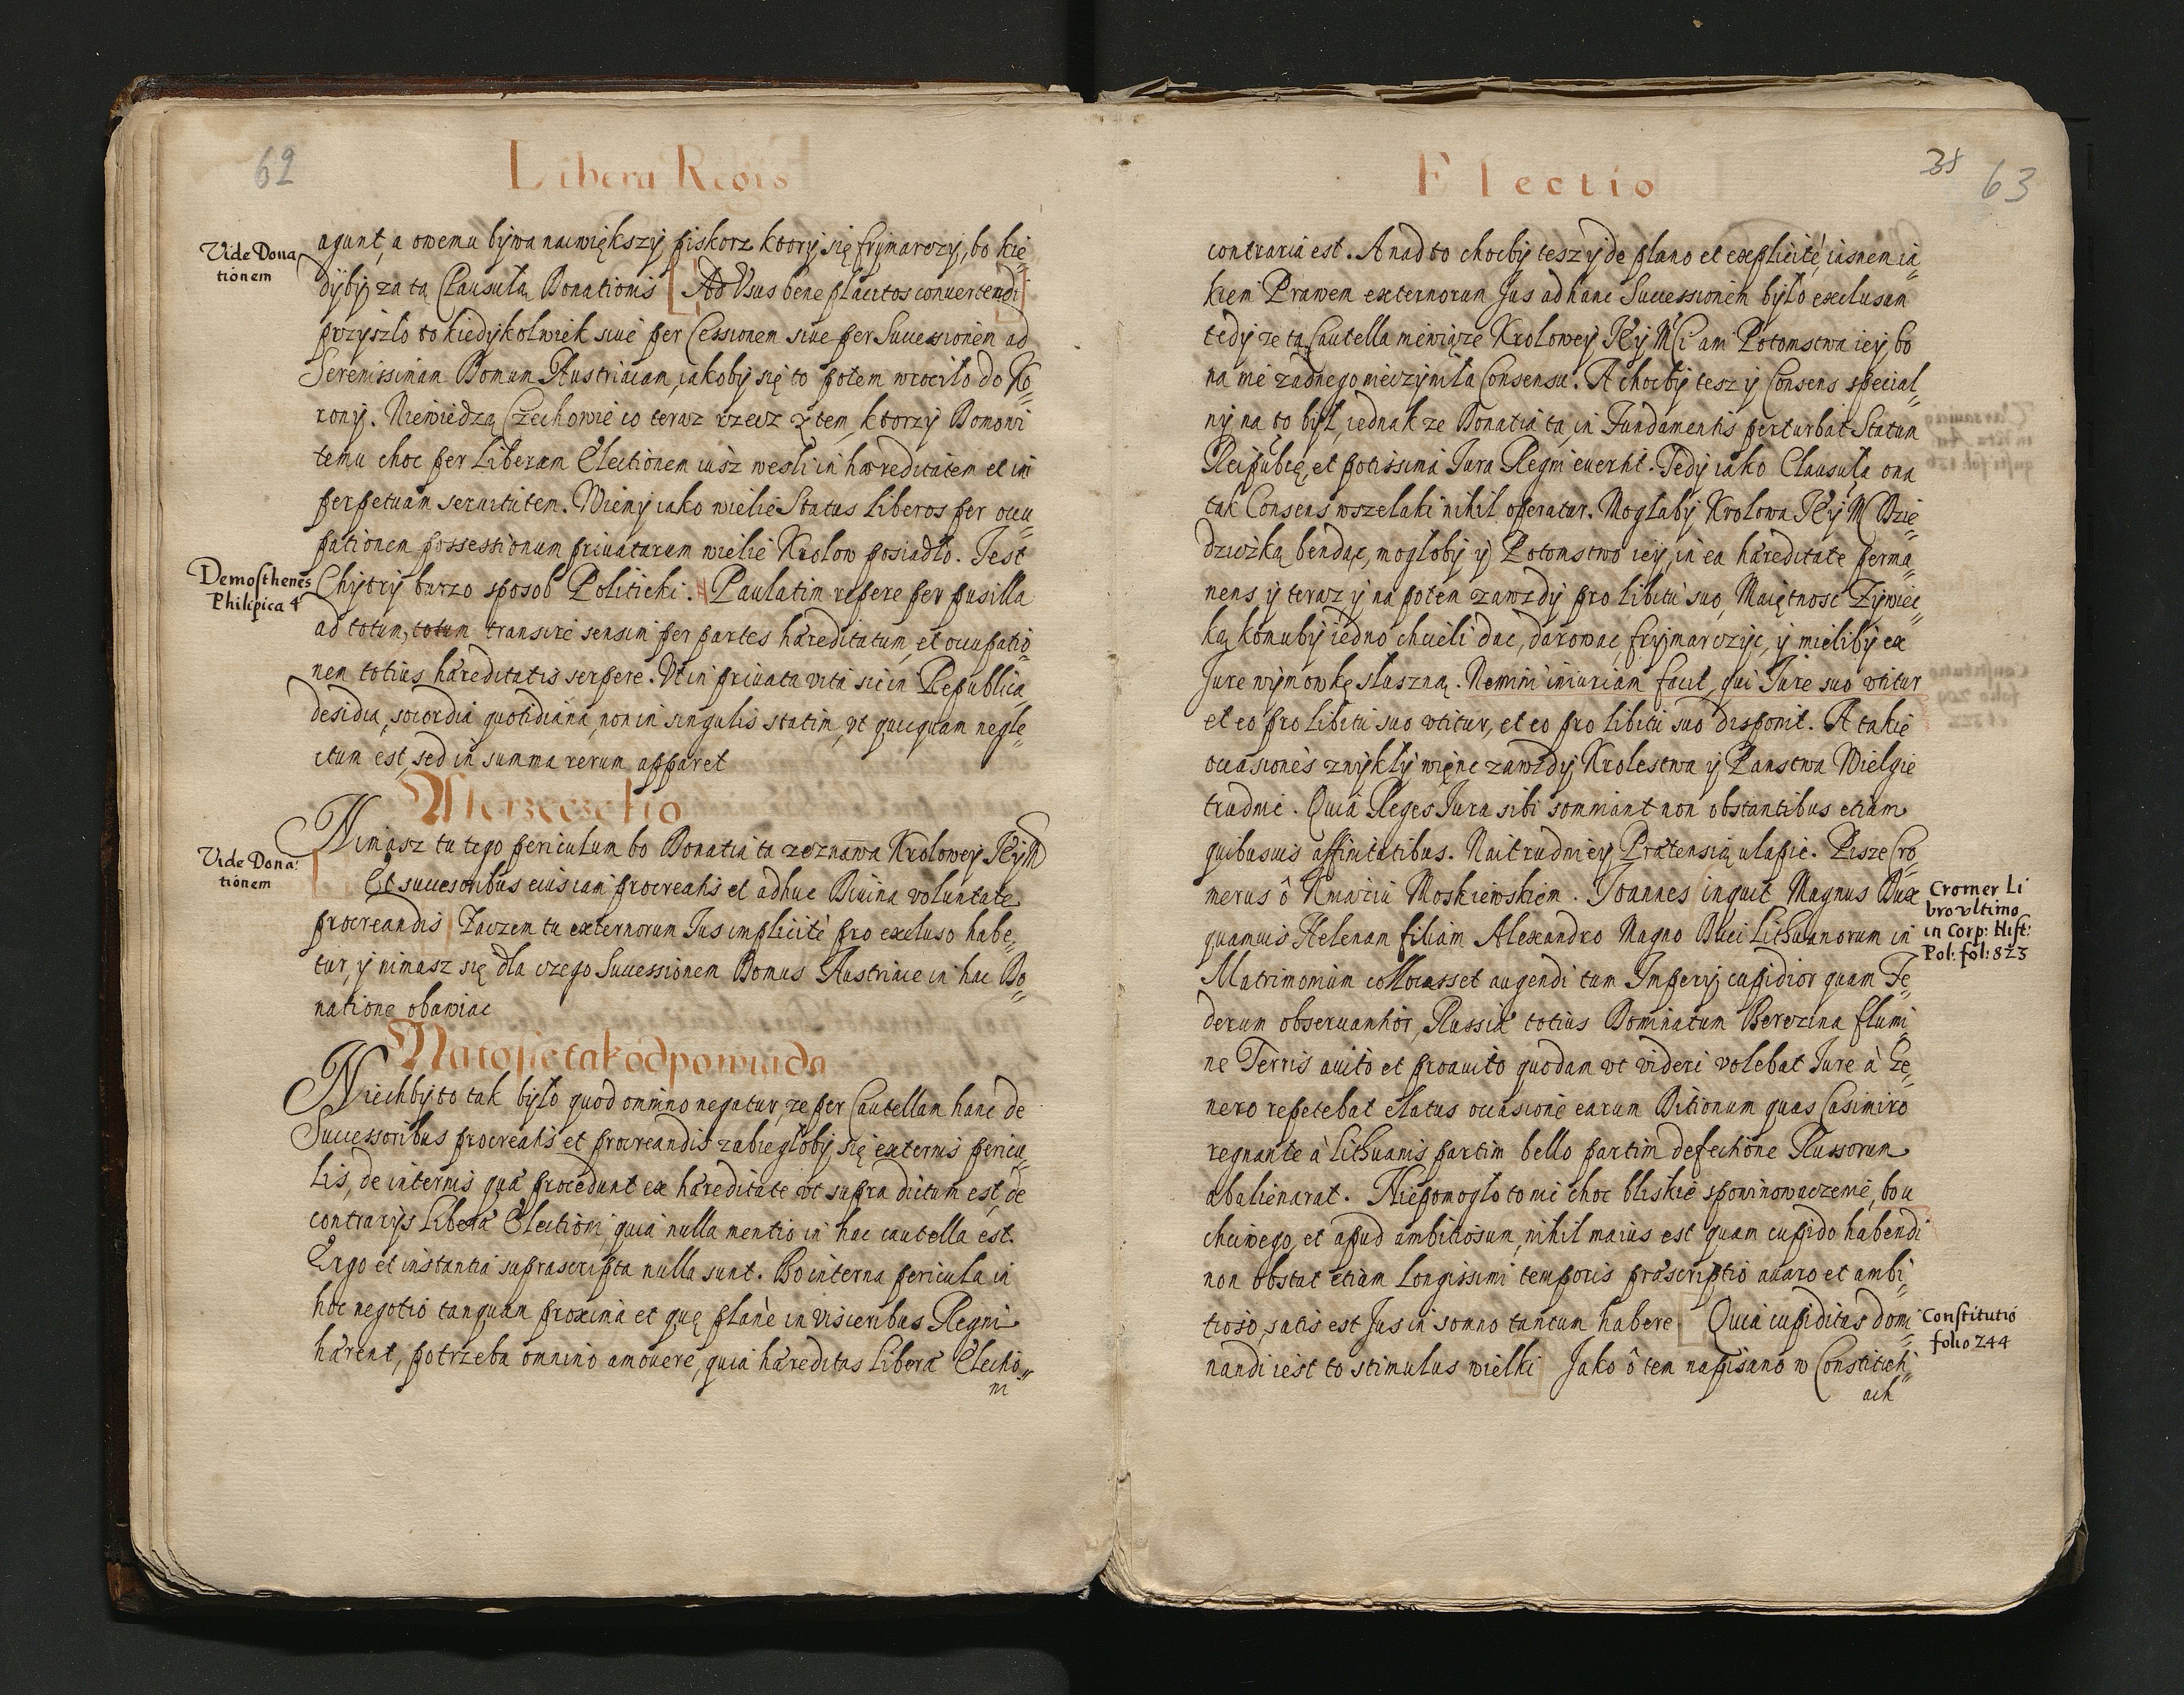 62
Libera Regis
Vide Dona
tionem
agunt, a owemu bywa nawiększy piskorz ktory się frymarczy, bo kie„
dyby za tą Clausulą Donationis [Ad Vsus bene placitos conuertendi]
przyszło to kiedykolwiek siue per Cessionem siue per Successionem ad
Serenissimam Domum Austriacam, iakoby się to potem wrociło do Ko„
rony. Niewiedzą Czechowie co teraz rzecz z tem, ktorzy Domowi
temu choc per Liberam Electionem iusz weszli in haereditatem et in
perpetuam seruitutem. Wiemy iako wielie Status Liberos per occu„
pationem possessionum priuatarum wielie Krolow posiadło. Jest
Demosthenes
Philipica 4
Chytry barzo sposob Politicki. Paulatim repere per pusilla
ad totum, totum transire sensim per partes haereditatum, et occupatio„
nem totius haereditatis serpere. Vt in priuata vita sic in Republica
desidia, socordia quotidiana, non in singulis statim, vt quicquam negle„
ctum est, sed in summa rerum apparet
Nimasz tu tego periculum bo Donatia ta zeznawa Krolowey Jey M
Vide Dona:
tionem
[Et succesoribus eius iam procreatis et adhuc Diuina voluntate
procreandis] Zaczem tu externorum Ius implicitè pro excluso habe„
tur, y nimasz się dla czego Successionem Domus Austriacae in hac Do„
natione obawiac
Na to sie tak odpowiada
Niechby to tak było quod omnino negatur, ze per Cautellam hanc de
Successoribus procreatis et procreandis zabiegłoby się externis pericu„
lis, de internis quae procedunt ex haereditate vt supra dictum est, de
contrarijs Liberae Electioni, quia nulla mentio in hac cautella est.
Ergo et instantia suprascripta nulla sunt. Bo interna pericula in
hoc negotio tanquam proxima et quę planè in visceribus Regni
haerent, potrzeba omnino amouere, quia haereditas Liberae Electio„
ni
38 63
Electio
contraria est. A nad to chocby tesz y de plano et explicitè, iasnem ia„
kiem Prawem externorum Jus ad hanc Successionem było exclusum
tedy ze ta Cautella niewiąze Krolowey Jey Mci ani Potomstwa iey, bo
na nie zadnego nieczyniła Consensu. A chocby tesz y Consens special„
ny na to był, iednak ze Donatia ta, in Fundamentis perturbat Statum
Reipubcę, et potissima Jura Regni euertit. Tedy iako Clausula ona
tak Consens wszelaki nihil operatur. Mogłaby Krolowa Jey M Dzie„
dziczką bendąc, mogłoby y Potomstwo iey, in ea haereditate perma„
nens y teraz y na potem zawzdy pro libitu suo, Maiętnosc Zywiec„
ką komuby iedno chcieli dac, darowac, frymarczyc, y mieliby ex
Jure wymowkę słuszną. Nemini iniuriam facit, qui Jure suo vtitur
et eo pro libitu suo vtitur, et eo pro libitu suo disponit. A takie
occasiones zwykły więnc zawzdy Krolestwa y Panstwa Wielgie
trudnic. Quia Reges Jura sibi somniant non obstantibus etiam
quibusuis affinitatibus. Naitrudniey Praetensią ulapic. Pisze Cro„
merus ô Kniaziu Moskiewskiem. Joannes inquit Magnus Dux
Cromer Li
bro vltimo
in Corp: Hist:
Pol: fol: 823
quamuis Helenam filiam Alexandro Magno Duci Lithuanorum in
Matrimonium collocasset augendi tum Imperij cupidior quam Fe„
derum obseruantior, Russiae totius Dominatum Berezina flumi
ne Terris auito et proauito quodam vt videri volebat Jure à Ge„
nero repetebat elatus occasione earum Ditionum quas Casimiro
regnante à Lithuanis partim bello partim defectione Russorum
abalienarat. Niepomogło to nic choc bliskie spowinowaczenie, bo u
chciwego, et apud ambitiosum, nihil maius est quam cupido habendi
non obstat etiam Longissimi temporis praescriptio auaro et ambi„
tioso, satis est Jus in somno tantum habere [Quia cupiditas domi„
Constitutio
folio 244
nandi iest to stimulus wielki] Jako ô tem napisano w Constituti„
ach